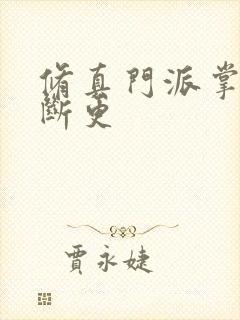 脩真門派掌
斷更
賈永婕